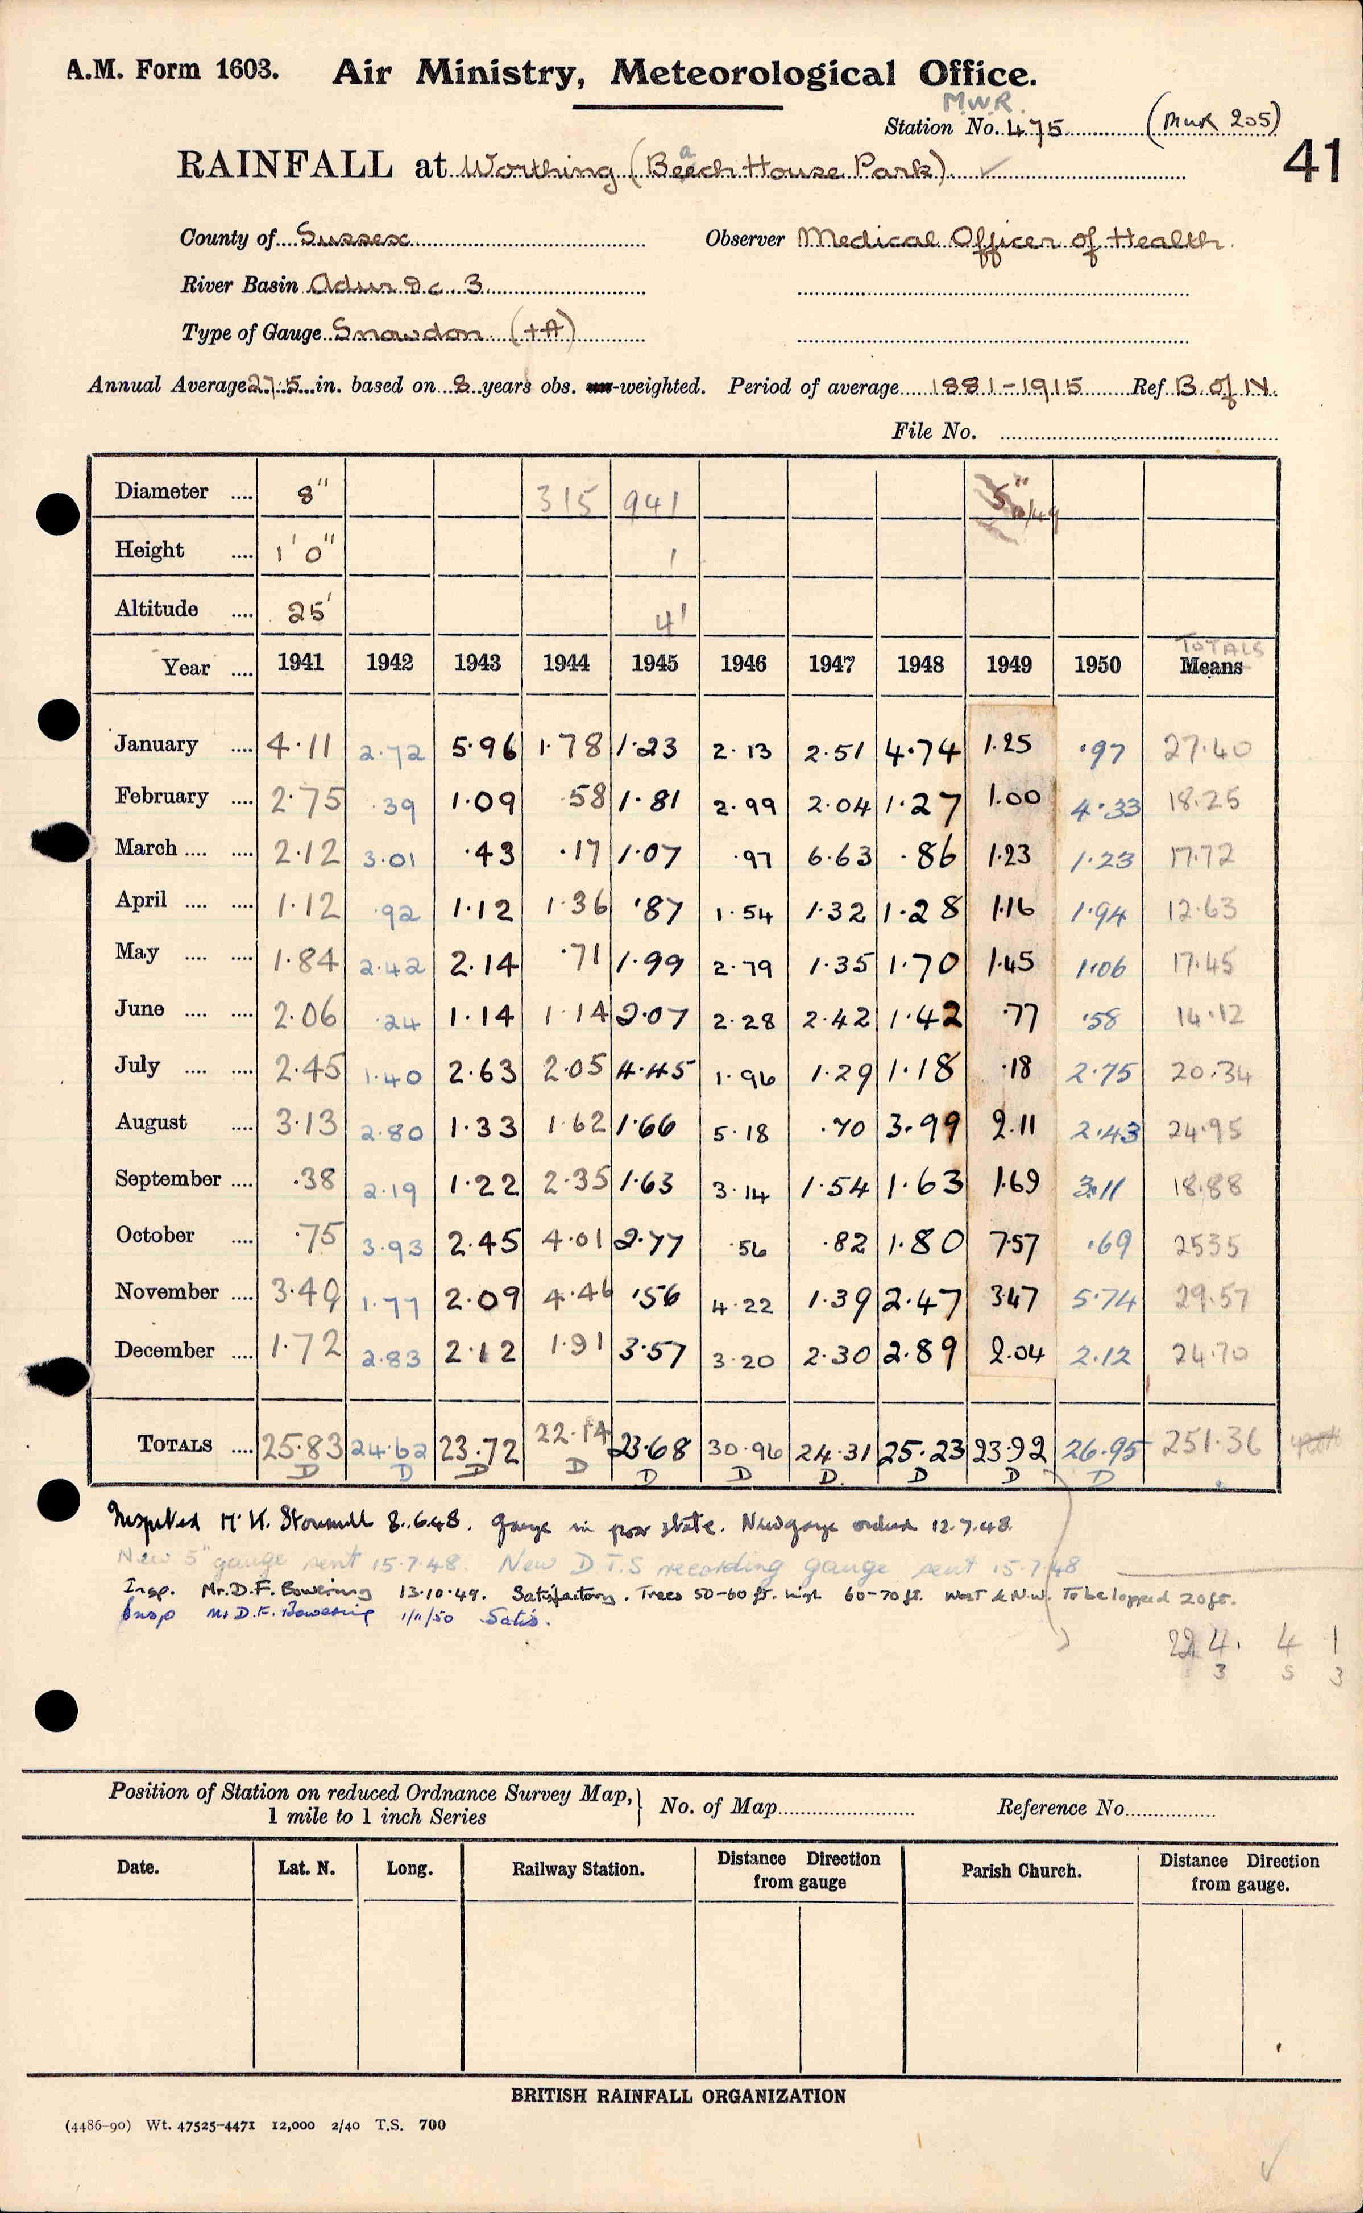 A.M. Form 1603. Air Ministry, Meteorological Office.
M.W.R.
Station No. 475 (MWR 205)
41
RAINFALL at Worthing (Beach House Park)
County of Sussex Observer Medical Officer of Health.
River Basin Adur &c 3
Type of Gauge Snowdon (+A)
Annual Average 27.5 in. based on 8 years obs. -weighted. Period of average 1881-1915 Ref. B of N.
File No.
Diameter 8" 315 941 5"
Height 1' 0" 1
Altitude 25' 4'
TOTALS
Year 1941 1942 1943 1944 1945 1946 1947 1948 1949 1950 Means
January 4.11 2.72 5.96 1.78 1.23 2.13 2.51 4.74 1.25 .97 27.40
February 2.75 .39 1.09 .58 1.81 2.99 2.04 1.27 1.00 4.33 18.25
March 2.12 3.01 .43 .17 1.07 .97 6.63 .86 1.23 1.23 17.72
April 1.12 .92 1.12 1.36 .87 1.54 1.32 1.28 1.16 1.94 12.63
May 1.84 2.42 2.14 .71 1.99 2.79 1.35 1.70 1.45 1.06 17.45
June 2.06 .24 1.14 1.14 2.07 2.28 2.42 1.42 .77 .58 14.12
July 2.45 1.40 2.63 2.05 4.45 1.96 1.29 1.18 .18 2.75 20.34
August 3.13 2.80 1.33 1.62 1.66 5.18 .70 3.99 2.11 2.43 24.95
September .38 2.19 1.22 2.35 1.63 3.14 1.54 1.63 1.69 3.11 18.88
October .75 3.93 2.45 4.01 2.77 .56 .82 1.80 7.57 .69 25.35
November 3.40 1.77 2.09 4.46 .56 4.22 1.39 2.47 3.47 5.74 29.57
December 1.72 2.83 2.12 1.91 3.57 3.20 2.30 2.89 2.04 2.12 24.70
TOTALS 25.83 24.62 23.72 22.14 23.68 30.96 24.31 25.23 23.92 26.95 251.36
D D D D D D D. D D D
Inspected 8.6.48. gauge in poor state. New gauge ordered 12.7.48
New 5" gauge sent 15.7.48. New D.T.S recording gauge sent 15.7.48
Insp. Mr. D.F. Bowering 13.10.49. Satisfactory. Trees 50-60 ft. high 60-70 ft. West & N.W. To be lopped 20ft.
Insp Mr D.F. Bowering 1/11/50 Satis.
224. 4 1
3 5 3
Position of Station on reduced Ordnance Survey Map, 1 mile to 1 inch Series No. of Map Reference No.
Date. Lat. N. Long. Railway Station. Distance Direction from gauge Parish Church. Distance Direction from gauge.
BRITISH RAINFALL ORGANIZATION
(4486-90) Wt. 47525-4471 12,000 2/40 T.S. 700